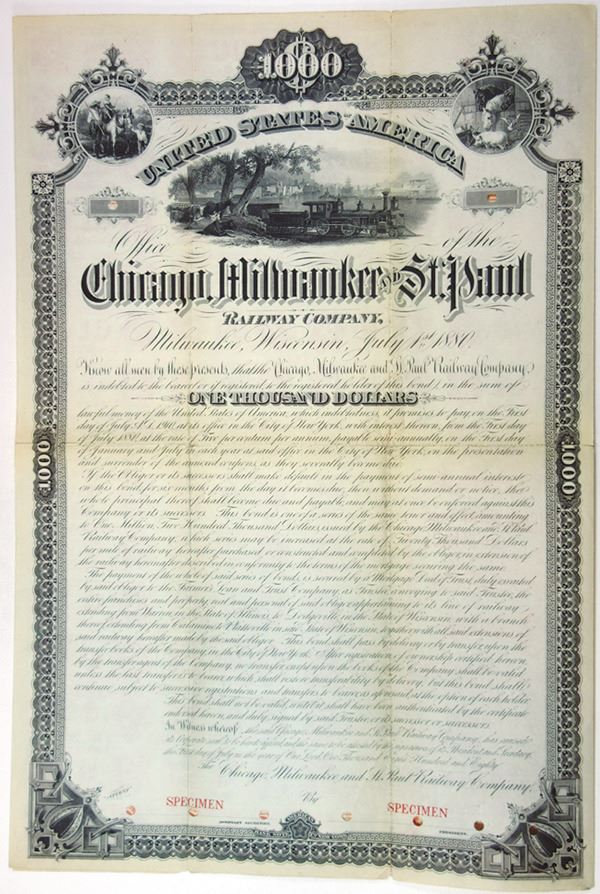 $1000
UNITED STATES OF AMERICA
Office of the
Chicago, Milwaukee AND St. Paul
RAILWAY COMPANY,
Milwaukee, Wisconsin, July 1st 1880.
Know all men by these presents, that the Chicago, Milwaukee and St. Paul Railway Company
is indebted to the bearer, or if registered, to the registered holder of this bond, in the sum of
ONE THOUSAND DOLLARS
lawful money of the United States of America, which indebtedness it promises to pay, on the First
day of July, A.D. at its office in the City of New York, with interest thereon, from the First day
of July 1880, at the rate of Five per centum per annum, payable semi-annually, on the First day
of January and July in each year at said office in the City of New York, on the presentation
and surrender of the annexed coupons, as they severally become due.
If the Obligor or its successors shall make default in the payment of semi-annual interest
on this bond, for six months from the day it becomes due, then without demand or notice, the
whole principal thereof shall become due and payable, and may at once be enforced against this
Company or its successors. This bond is one of a series of the same tenor and effect, amounting
to One Million, Five Hundred Thousand Dollars, issued by the Chicago, Milwaukee and St. Paul
Railway Company, which series may be increased at the rate of Twenty Thousand Dollars
per mile of railway hereafter purchased or constructed and completed by the obligor in extension of
the railway hereafter described in conformity to the terms of the mortgage securing the same.
The payment of the whole of said series of bonds, is secured by a Mortgage Deed of Trust, duly executed
by said obligor to the Farmers' Loan and Trust Company, as Trustee, conveying to said Trustee, the
entire franchises and property, real and personal of said obligor appertaining to its line of railway
extending from Warren in the State of Illinois, to Dodgeville in the State of Wisconsin, with a branch
thereof extending from Calamine to Platteville in said State of Wisconsin, together with all said extensions of
said railway hereafter made by the said obligor. This bond shall pass by delivery or by transfer upon the
transfer books of the Company in the City of New York. After registration of ownership certified hereon,
by the transfer agent of the Company, no transfer except upon the books of the Company, shall be valid
unless the last transfer be to bearer, which shall restore transferability by delivery, but this bond shall
continue subject to successive registrations and transfers to bearer as aforesaid, at the option of each holder.
This bond shall not be valid, until it shall have been authenticated by the certificate
endorsed hereon, and duly signed by said Trustee, or its successor or successors.
In Witness whereof, the said Chicago, Milwaukee and St. Paul Railway Company, has caused
its Corporate seal to be hereto affixed, and the same to be attested by the signatures of its President and Secretary,
the First day of July in the year of Our Lord, One Thousand Eight Hundred and Eighty.
The Chicago, Milwaukee and St. Paul Railway Company,
By
SPECIMEN
SPECIMEN
ASSISTANT SECRETARY.
PRESIDENT.
1000
1000